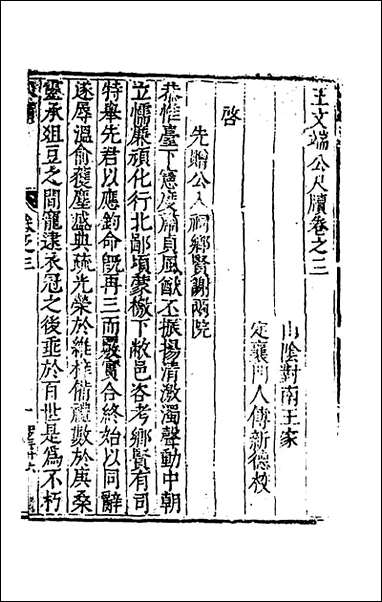 王文端公尺牘卷之三
山陰對南王家
定襄門人傅新德校
啓
先贈公入祠鄉賢謝兩院
恭惟臺下憲度端貞風猷丕振揚清激濁聲動中朝
立懦廉頑化行北鄙頃蒙檄下敝邑咨考鄉賢有司
特舉先君以應鈞命旣再三而覈實合終始以同辭
遂辱溫俞獲塵盛典疏光榮於維梓備禮數於庚桑
靈承俎豆之間寵逮衣冠之後垂於百世是爲不朽
卷之三
一